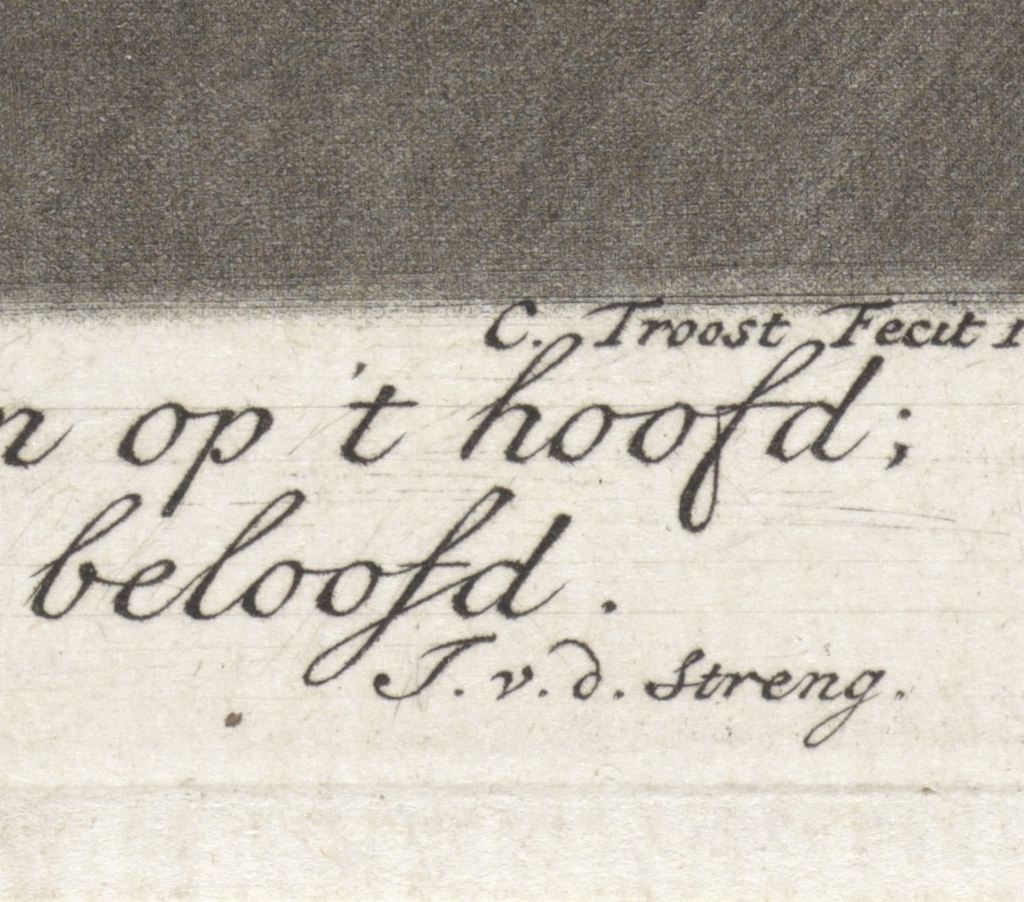 C. Troost Fecit 1
n op 't hoofd;
beloofd.
J. v. d. Streng.